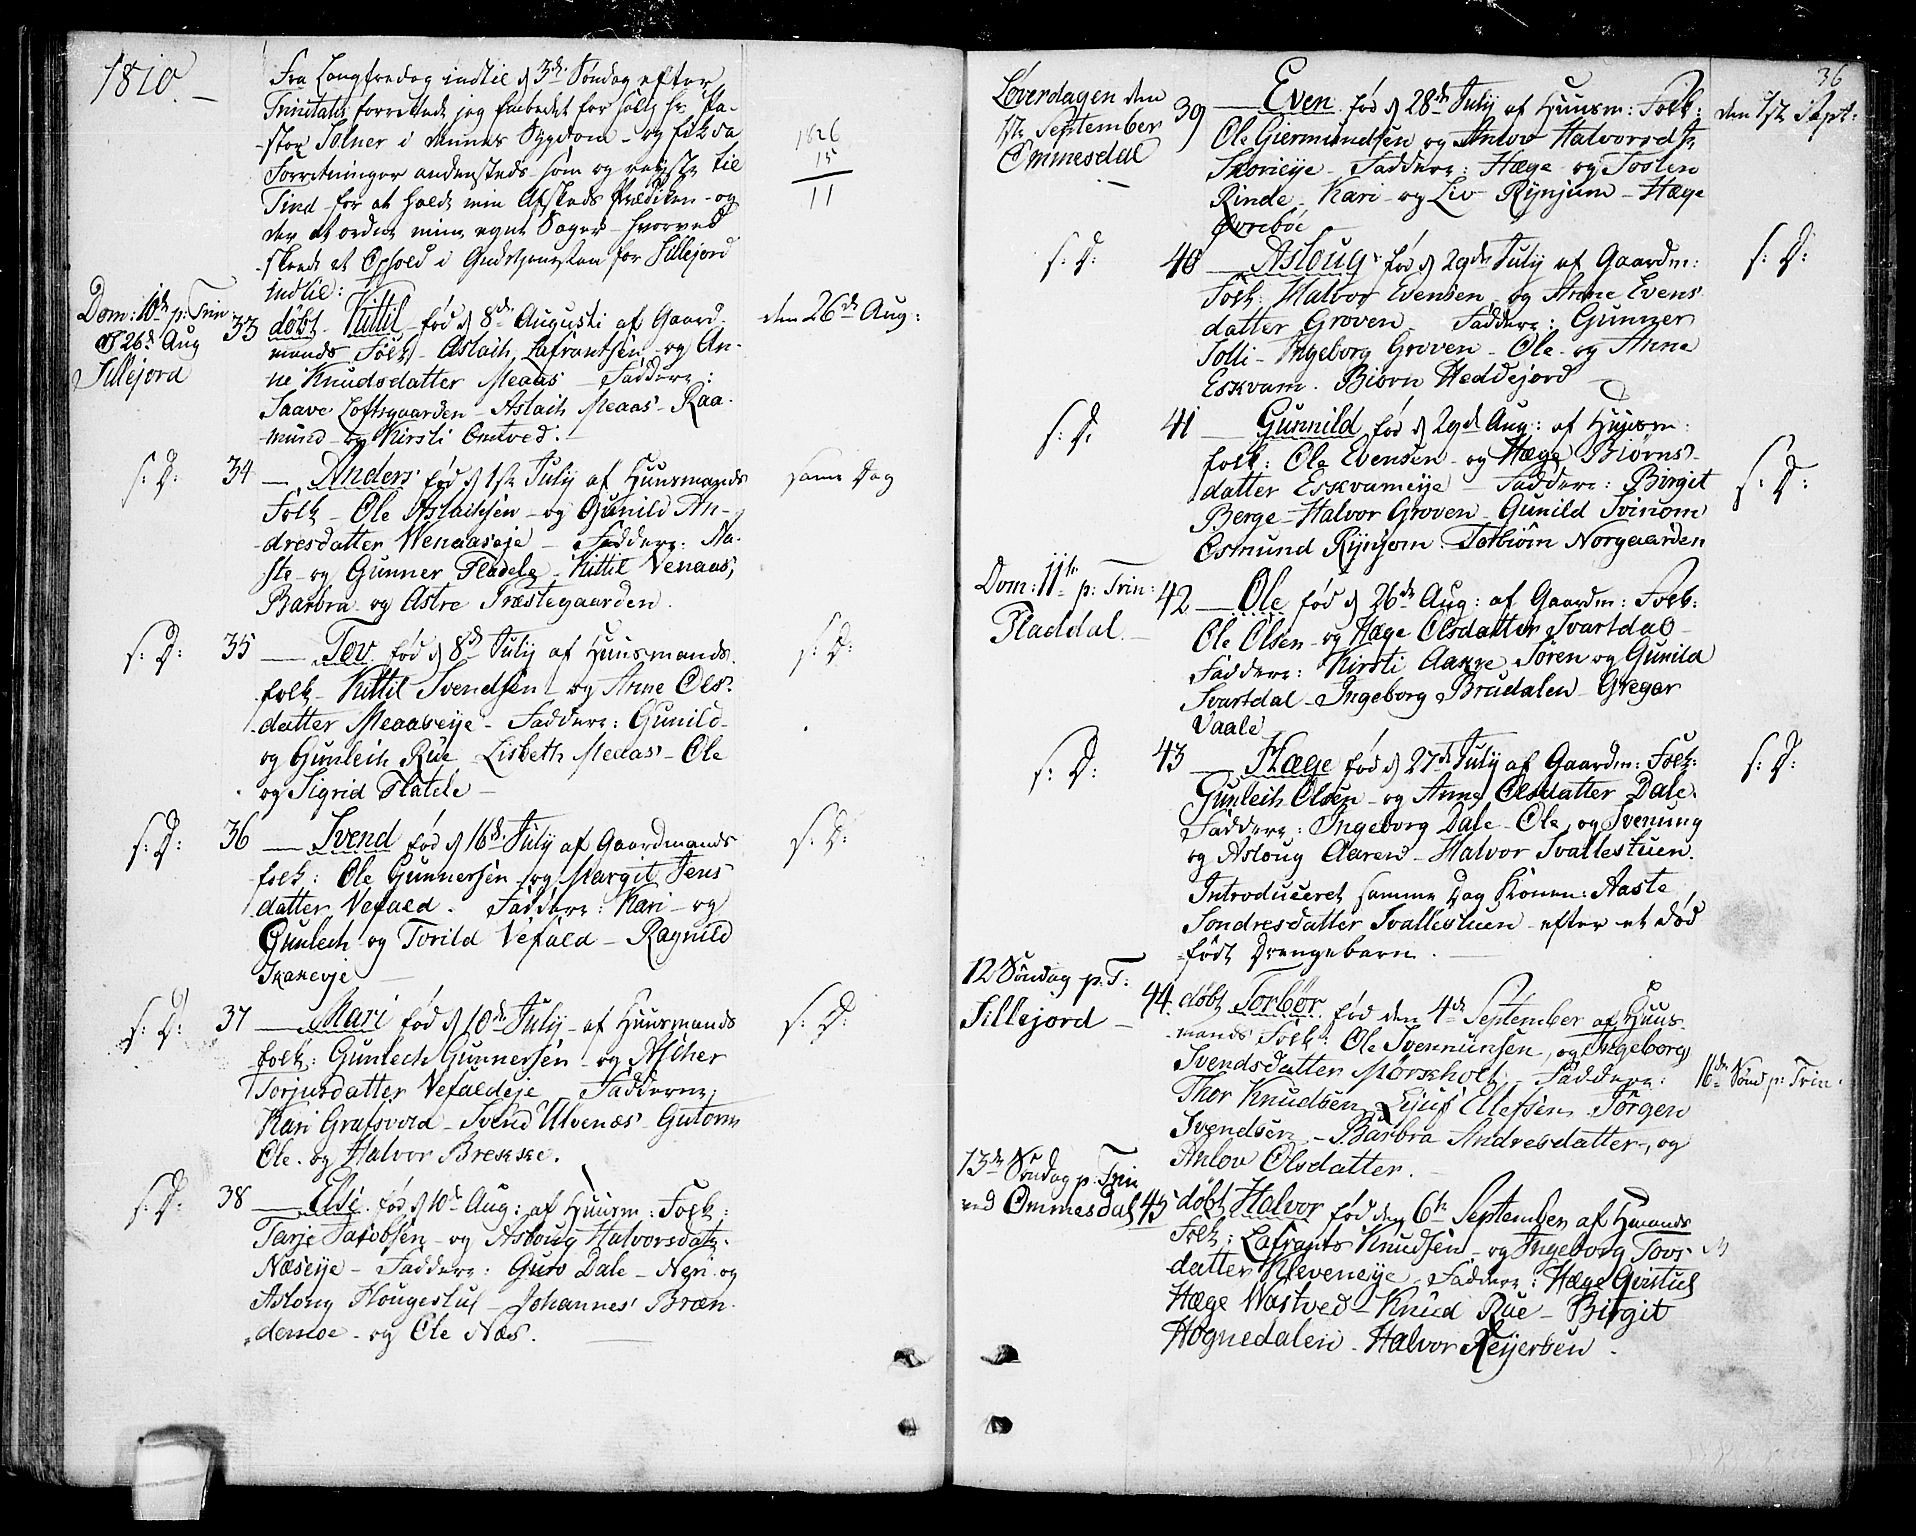 1810. —
Fra Langfredag indtil d 3de Søndag efter
Trinitatis forrettede jeg Embedet for salig Hr Pa-
stor Tolner i Munes Sygdom - og fik da
Forretninger andensteds som og reyste til
Tind - for at holde min Afskeds Prædiken - og
der at ordne mine egne Sager - hvorved
skeede et Ophold i Gudstjenesten for Sillejord
indtil:
1826
15
11
Dom: 10de p: Trin
d 26de Aug
Sillejord
33 døbt Kittil fød d 8de Augusti af Gaard-
mands Folk - Aslach Lafrantsen - og An-
ne Knudsdatter Meaas - Faddere:
Saave Loftsgaarden - Aslach Meaas - Raa-
mund - og Kirsti Omtved.
den 26de Aug:
s: D: 34 — Anders fød d 1ste July af Huusmands
Folk - Ole Aslachsen - og Gunild An-
dresdatter Wenaaseje - Faddere: Aa-
ste - og Gunner Fladele - Kittil Venaas,
Barbra og Astre Præstegaarden.
same Dag
s: D: 35 — Tov fød d 8de July af Huusmands
folk - Kittil Svendsen - og Anne Ols-
datter Meaaseije - Faddere: Gunild
og Gunleich Rue - Lisbeth Meaas - Ole
og Sigrid Flatele —
s: D:
s: D: 36 — Svend fød d 16de July af Gaardmands
folk: Ole Gunnersen - og Margit Jens
datter Vefald. Faddere: Kari - og
Gunlech og Torild Vefald - Ragnild
Skaneyje —
s: D:
s: D: 37 — Mari fød d 10de July - af Huusmands
folk: Gunlech Gunnersen - og Ascher
Torjusdatter Vefaldeje - Fadderne;
Kari Grafsvold - Svend Ulvenæs - Gutorm
Ole og Halvor Brekke.
s: D:
s: D: 38 — Else fød d 10de Aug: af Huusm: Folk:
Tarje Jacobsen - og Aslaug Halvorsdatr.
Næseije - Faddere: Guro Dale - Neri og
Aslong Hougestul - Johannes Bræn-
demoe - og Ole Næs.
36
Løverdagen den
1ste September
Ommesdal
39 — Even fød d 28de July af Huusm: Folk:
Ole Giermundsen og Anlov Halvorsdtr
Skorieije - Faddere: Hæge og Tosten
Rinde - Kari - og Liv Rynjum - Hæge
Øvrebøe
den 1ste Sept:
s: D: 40 — Asloug fød d 29de July af Gaardm:
Folk: Halvor Evensen og Anne Evens
datter Groven - Faddere: Gunner
Solli - Ingeborg Groven - Ole og Anne
Eskvam. Biørn Heddejord
s: D:
s: D: 41 — Gunnild fød d 29de Aug: af Huusm:
folk: Ole Evensen - og Hæge Biørns-
datter Esskvameije - Faddere: Birgit
Berge - Halvor Groven - Gunild Svinom
Osmund Rynjom. Torbiørn Norgaarden
s: D:
Dom: 11te p: Trin:
Fladdal. —
42 — Ole fød d 26de Aug: af Gaardm: Folk:
Ole Olsen - og Hæge Olsdatter Svartdal -
Faddere: Kirsti Aakre Søren og Gunild
Svartdal - Ingeborg Brudalen - Gregar
Vaale
s: D: 43 — Hæge fød d 27de July af Gaardm: Folk:
Gunleih Olsen - og Anne Olsdatter Dale.
Faddere: Ingeborg Dale - Ole og Svenung
og Asloug Aaren - Halvor Svallestuen.
Introduceret samme Dag Konen: Aaste
Sondresdatter Svallestuen - efter et død
født Drengebarn. —
s: D:
12 Søndag p: T:
Sillejord —
44. døbt Torbør fød den 4de September af Huus-
mands Folk: Ole Svennunsen, og Ingeborg
Svendsdatter Mørkholt - Faddere:
Thor Knudsen Ejuf Ellefsen - Jørgen
Svendsen - Barbra Andresdatter, og
Anlov Olsdatter. —
16de Sønd p: Trin.
13de Søndag p. Trin
ved Ommesdal 45 døbt Halvor fød den 6te September af Hmands
Folk: Lafrants Knudsen - og Ingeborg Tovs-
datter Kleveneije - Faddere: Hæge Geistul
Hæge Wastved - Knud Rue - Birgit
Hognedalen - Halvor Reijersen.